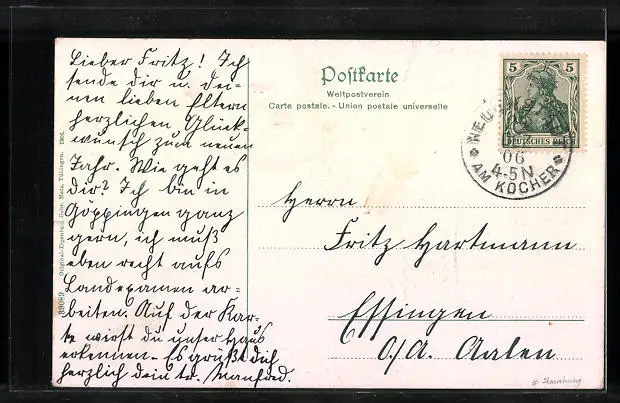 Lieber Fritz! Ich
sende dir u. dei-
nen lieben Eltern
herzlichen Glück-
wunsch zum neuen
Jahr. Wie geht es
dir? Ich bin in
Göppingen ganz
gern, ich muß
eben recht aufs
Landexamen ar-
beiten. Auf der Kar-
te wirst du unser Haus
erkennen. Es grüßt dich
herzlich dein tr. Manfred.
Postkarte
Weltpostverein
Carte postale. - Union postale universelle
5 5
DEUTSCHES REICH
06
4-5N
AM KOCHER
Herrn
Fritz Hartmann
Essingen
O/A. Aalen
39089 Original-Eigentum Gebr. Metz, Tübingen. 1904.